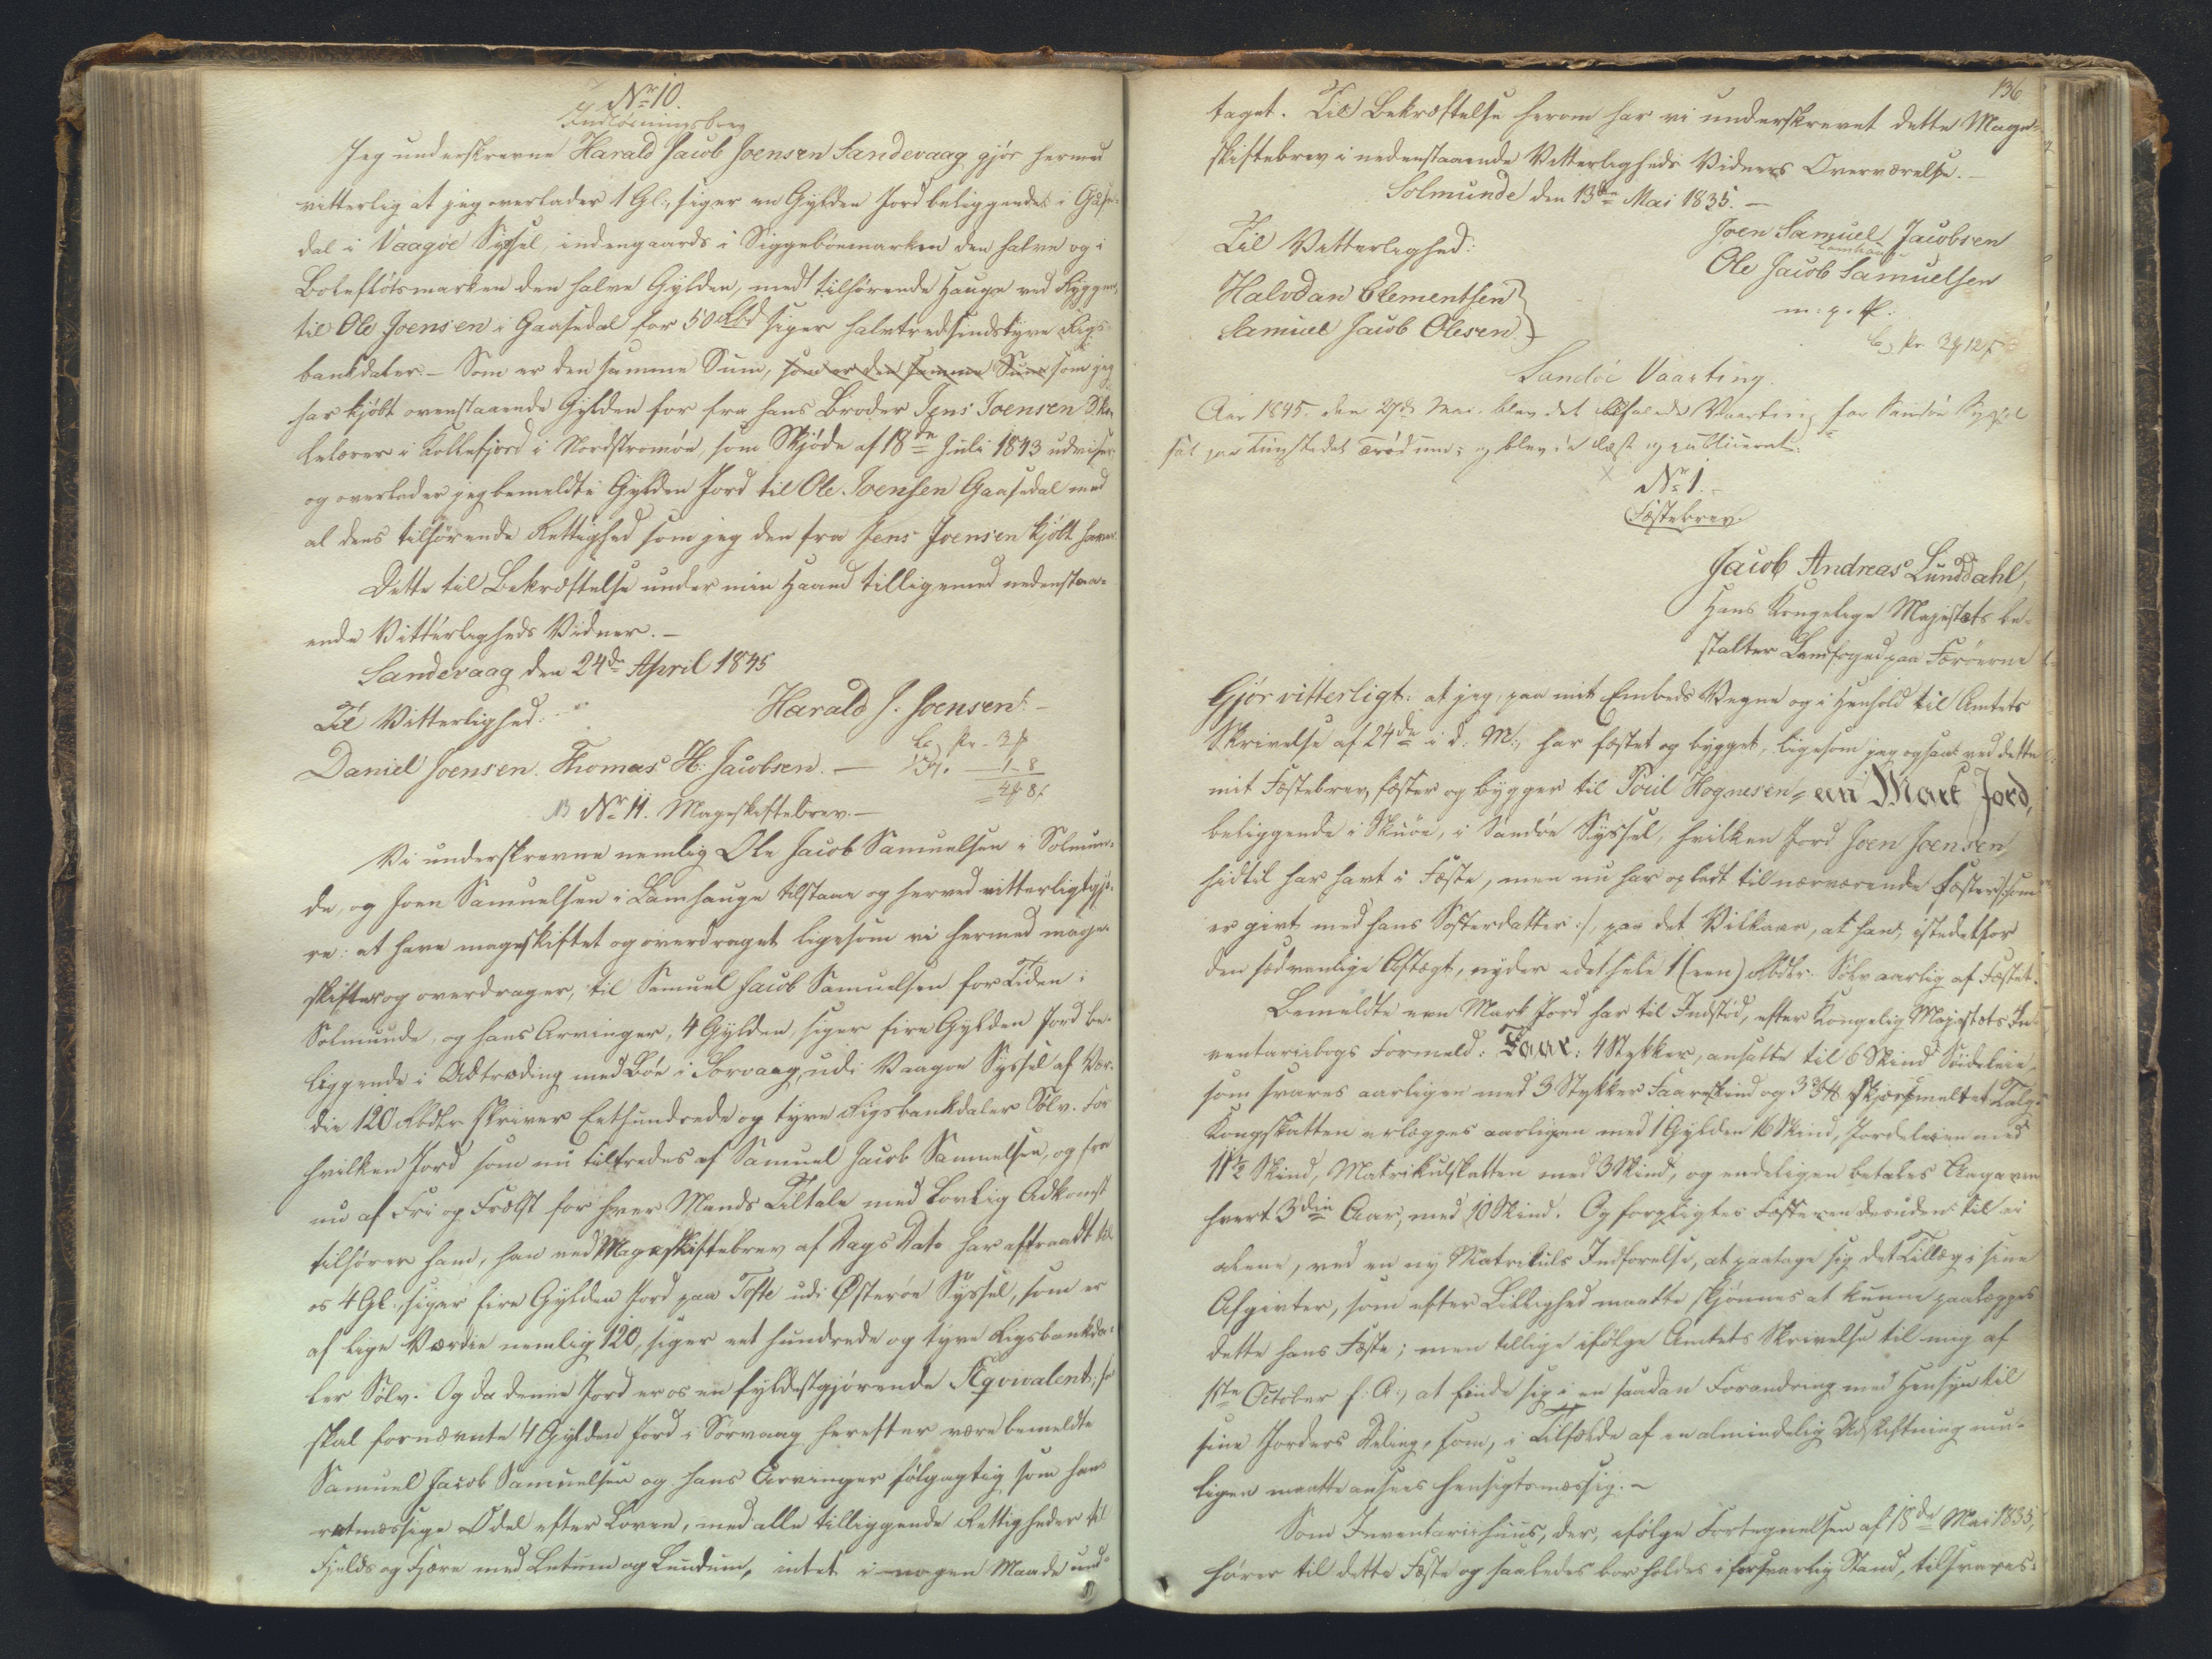 No 10.
Indløsningsbrev
Jeg underskrevne Harald Jacob Joensen Sandevaag gjør hermed
vitterlig at jeg overlader 1 Gl:, siger en Gylden Jord beliggendes i Gaase-
dal i Vaagøe Syssel, indengaards i Siggebøemarken den halve og i
Boleflötsmarken den halve Gylden, med tilhørende Hauge ved Ryggen,
til Ole Joensen i Gaasedal for 50 Rbd siger halvtredsindstyve Rigs-
bankdaler. – Som er den samme Sum, som er den samme Sum som jeg
har kjöbt ovenstaaende Gylden for fra hans Broder Jens Joensen Sko-
lelærer i Kollefjord i Nordstromöe, som Skjöde af 18de Juli 1843 udviser
og overlader jeg bemeldte Gylden Jord til Ole Joensen Gaasedal med
al dens tilhørende Rettighed som jeg den fra Jens Joensen kjöbt haver.
Dette til Bekræftelse under min Haand tilligemed nedenstaa-
ende Vitterligheds Vidner. –
Sandevaag den 24de April 1845
Til Vitterlighed: Harald J. Joensen. –
Daniel Joensen. Thomas H: Jacobsen. –
No 11. Mageskiftebrev. –
Vi underskrevne nemlig Ole Jacob Samuelsen i Solmun-
de, og Joen Samuelsen i Lamhauge tilstaae og herved vitterligtgjö-
re: at have mageskiftet og overdraget ligesom vi hermed mage-
skifter og overdrager, til Samuel Jacob Samuelsen for Tiden i
Solmunde, og hans Arvinger, 4 Gylden, siger fire Gylden Jord be-
liggende i Udtræding med Böe i Sorvaag, udi Vaagøe Syssel af Vær-
die 120 Rbdlr skriver Eethundrede og tyve Rigsbankdaler Sölv. For
hvilken Jord som nu tiltrædes af Samuel Jacob Samuelsen, og fra
nu af Fri og Frelst for hver Mands Tiltale med Lovlig Adkomst
tilhører ham, han ved Mageskiftebrev af Dags Dato har aftraadt til
os 4 Gl:, siger fire Gylden Jord paa Tofte udi Østerøe Syssel, som er
af lige Værdie nemlig 120, siger eet hundrede og tyve Rigsbankda-
ler Sölv. Og da denne Jord er os en fyldestgjörende Æqvivalent, so
skal fornævnte 4 Gylden Jord i Sörvaag herefter være bemeldte
Samuel Jacob Samuelsen og hans Arvinger fölgagtig som hans
retmæssige Odel efter Loven, med alle tilliggende Rettigheder til
Fjelds og Fjære med Lutum og Lundum, intet i nogen Maade und-
136
taget. Til Bekræftelse herom har vi underskrevet dette Mage-
skiftebrev i nedenstaaende Vitterligheds Vidners Overværelse. –
Solmunde den 13de Mai 1835. –
Til Vitterlighed: Joen Samuel Jacobsen
Lamhauge
Halvdan Clementsen Ole Jacob Samuelsen
Samuel Jacob Olesen m: p: P.
Sandöe Vaarting.
Aar 1845. den 27de Mai blev det befalede Vaarting for Sandöe Syssel
sat paa Tingstedet Trödum; og blev da læst og publiceret:
No 1. –
Fæstebrev.
Jacob Andreas Lunddahl,
Hans Kongelige Majestæts be-
stalter Landfoged paa Færöerne
Gjör vitterligt: at jeg, paa mit Embeds Vegne og i Henhold til Amtets
Skrivelse af 24de i d: M:, har fæstet og bygget, ligesom jeg ogsaa ved dette
mit Fæstebrev, fæster og bygger til Poul Hognesen, een Mark Jord,
beliggende i Skuöe, i Sandöe Syssel, hvilken Jord Joen Joensen
hidtil har havt i Fæste, men nu har opladt til nærværende Fæster /: som
er givt med hans Søsterdatter :/, paa det Vilkaar, at han, istedetfor
den sædvanlige Aftægt, nyder idethele 1 (een) Rbdlr. Sölv aarlig af Fæstet.
Bemeldte een Mark Jord har til Indstöd, efter Kongelig Majestæts In-
ventariibogs Formeld: Faar: 4 Stykker, ansatte til 6 Skind Söideleie,
som svares aarligen med 3 Stykker Faareskind og skjærsmeltet Talg.
Kongsskatten erlægges aarligen med 1 Gylden 16 Skind, Jordeleien med
11½ Skind, Matrikulskatten med 3 Skind, og endeligen betales Aagaven
hvert 3die Aar, med 10 Skind. Og forpligtes Fæsteren desuden til ei
alene, ved en ny Matrikuls Indførelse, at paatage sig det Tillæg i sine
Afgivter, som efter Billighed maatte skjönnes at kunne paalægges
dette hans Fæste; men tillige ifölge Amtets Skrivelse til mig af
1ste October f: A:, at finde sig i en saadan Forandring med Hensyn til
sine Jorders Deling, som, i Tilfælde af en almindelig Udskiftning mu-
ligen maatte ansees hensigtsmæssig. –
Som Inventariihuus, der, ifölge Fortegnelsen af 18de Mai 1835,
hörer til dette Fæste og saaledes bør holdes i forsvarlig Stand, tilsvares: